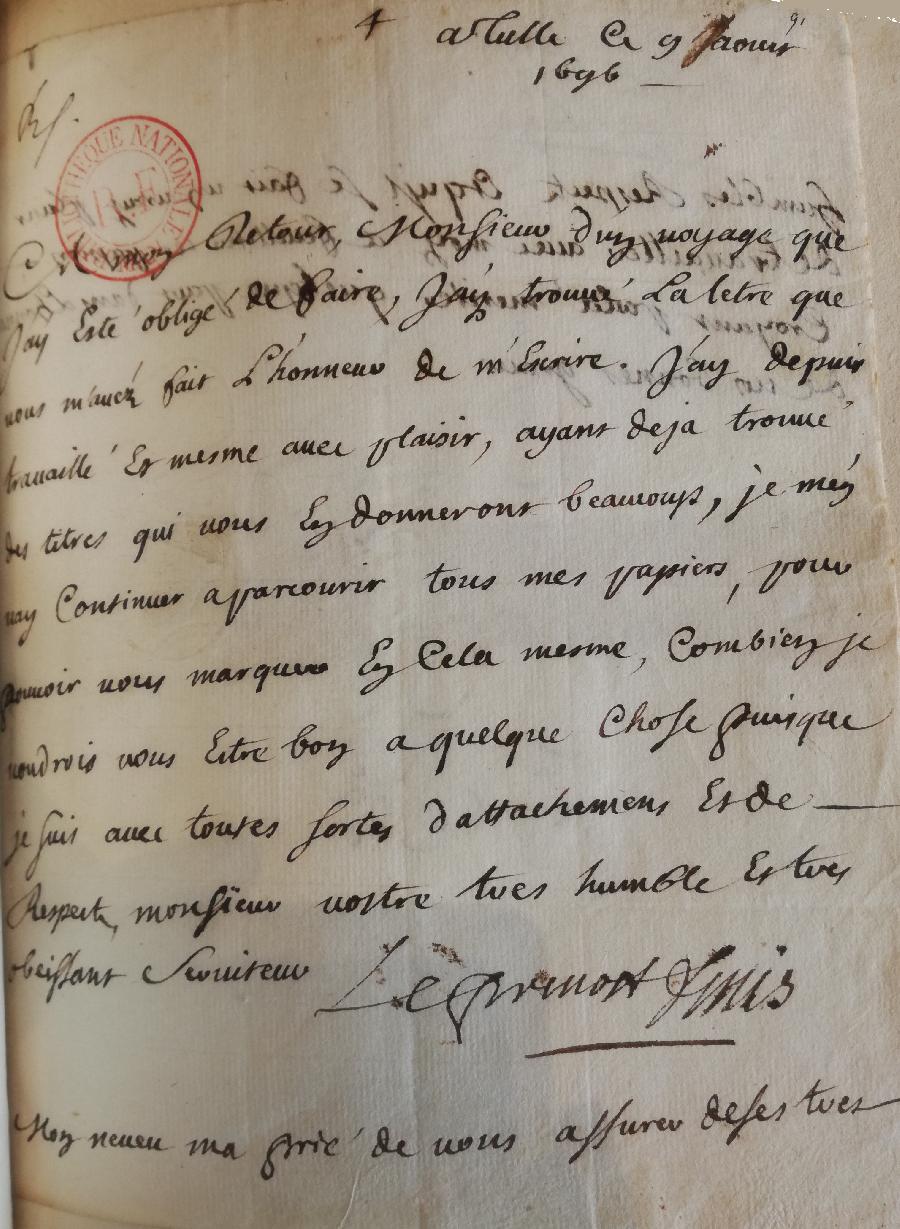 4
91
a Tulle Ce 9 aoust
1696
BIBLIOTHEQUE NATIONALE
R.F.
A mon Retour, Monsieur dun voyage que
Jay Esté obligé de faire, Jay trouué La letre que
uous m'auez fait L'honneur de m'Escrire. J'ay depuis
trauaillé Et mesme auec plaisir, ayant deja trouué
des titres qui uous En donneront beaucoup, je m'en
uay Continuer a parcourir tous mes papiers, pour
pouuoir uous marquer En Cela mesme, Combien je
uoudrois uous Estre bon a quelque Chose puisque
je suis auec toutes sortes dattachemens Et de
Respect, monsieur uostre tres humble Et tres
obeissant Seruiteur
Mon neueu ma prié de uous assurer de ses tres